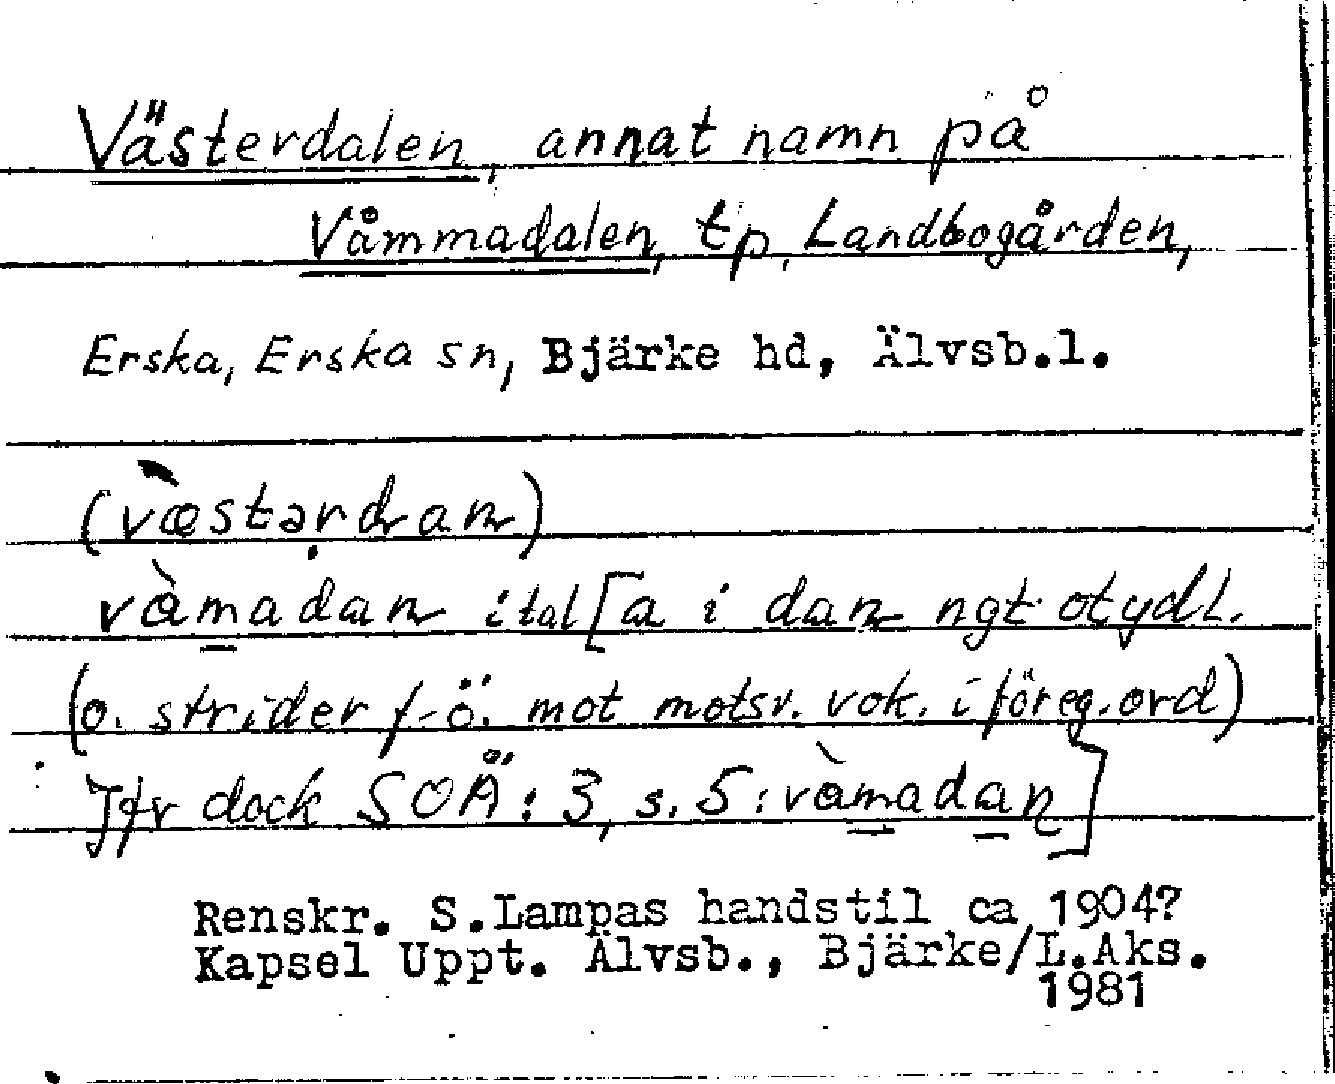 Västerdalen, annat namn på
Våmmadalen, tp, Landbogården,
Erska, Erska sn, Bjärke hd, Älvsb.l.
(væ̀stərdan)
vàmadan i tal [a i dan ngt otydl.
(o. strider f-ö. mot motsv. vok. i föreg. ord)
Jfr dock SOÄ: 3, s. 5: vàmadan]
Renskr. S.Lampas handstil ca 1904?
Kapsel Uppt. Älvsb., Bjärke/L.Aks.
1981